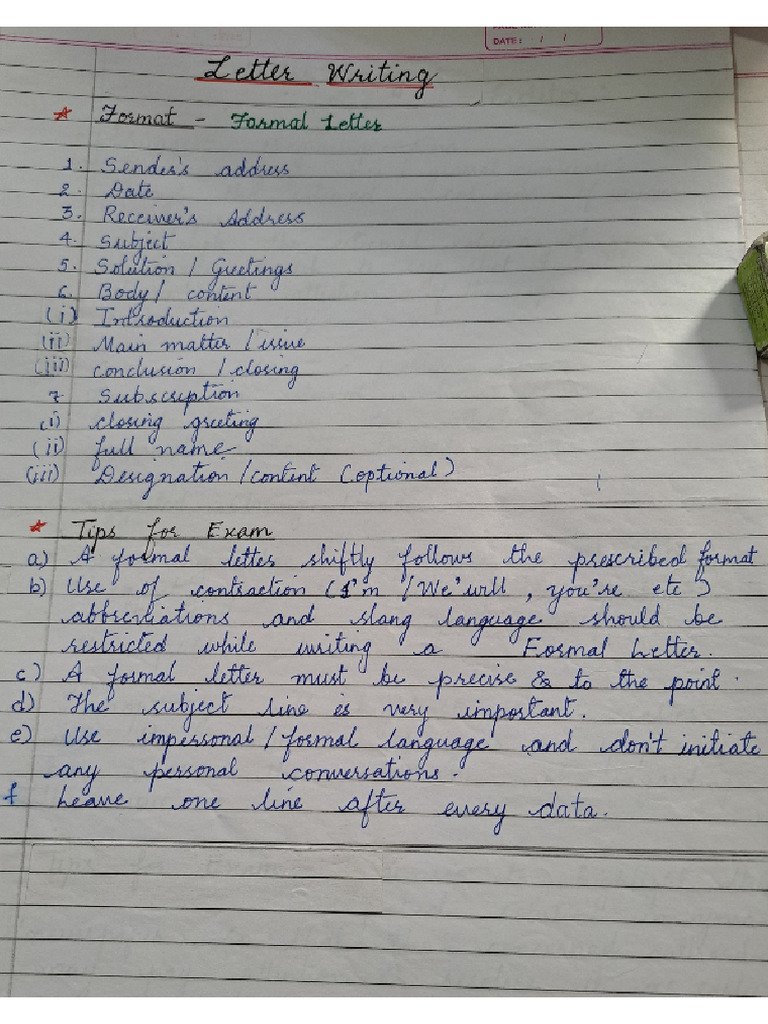 DATE: / /
Letter Writing
* Format - Formal Letter
1. Sender's address
2. Date
3. Receiver's Address
4. Subject
5. Solution / Greetings
6. Body / content
(i) Introduction
(ii) Main matter / issue
(iii) conclusion / closing
7 Subscription
(i) closing greeting
(ii) full name
(iii) Designation / content (optional)
* Tips for Exam
a) A formal letter shiftly follows the prescribed format
b) Use of contraction (I'm / We'will, you're etc)
abbreviations and slang language should be
restricted while writing a Formal Letter.
c) A formal letter must be precise & to the point.
d) The subject line is very important.
e) Use impersonal / formal language and don't initiate
any personal conversations.
f Leave one line after every data.